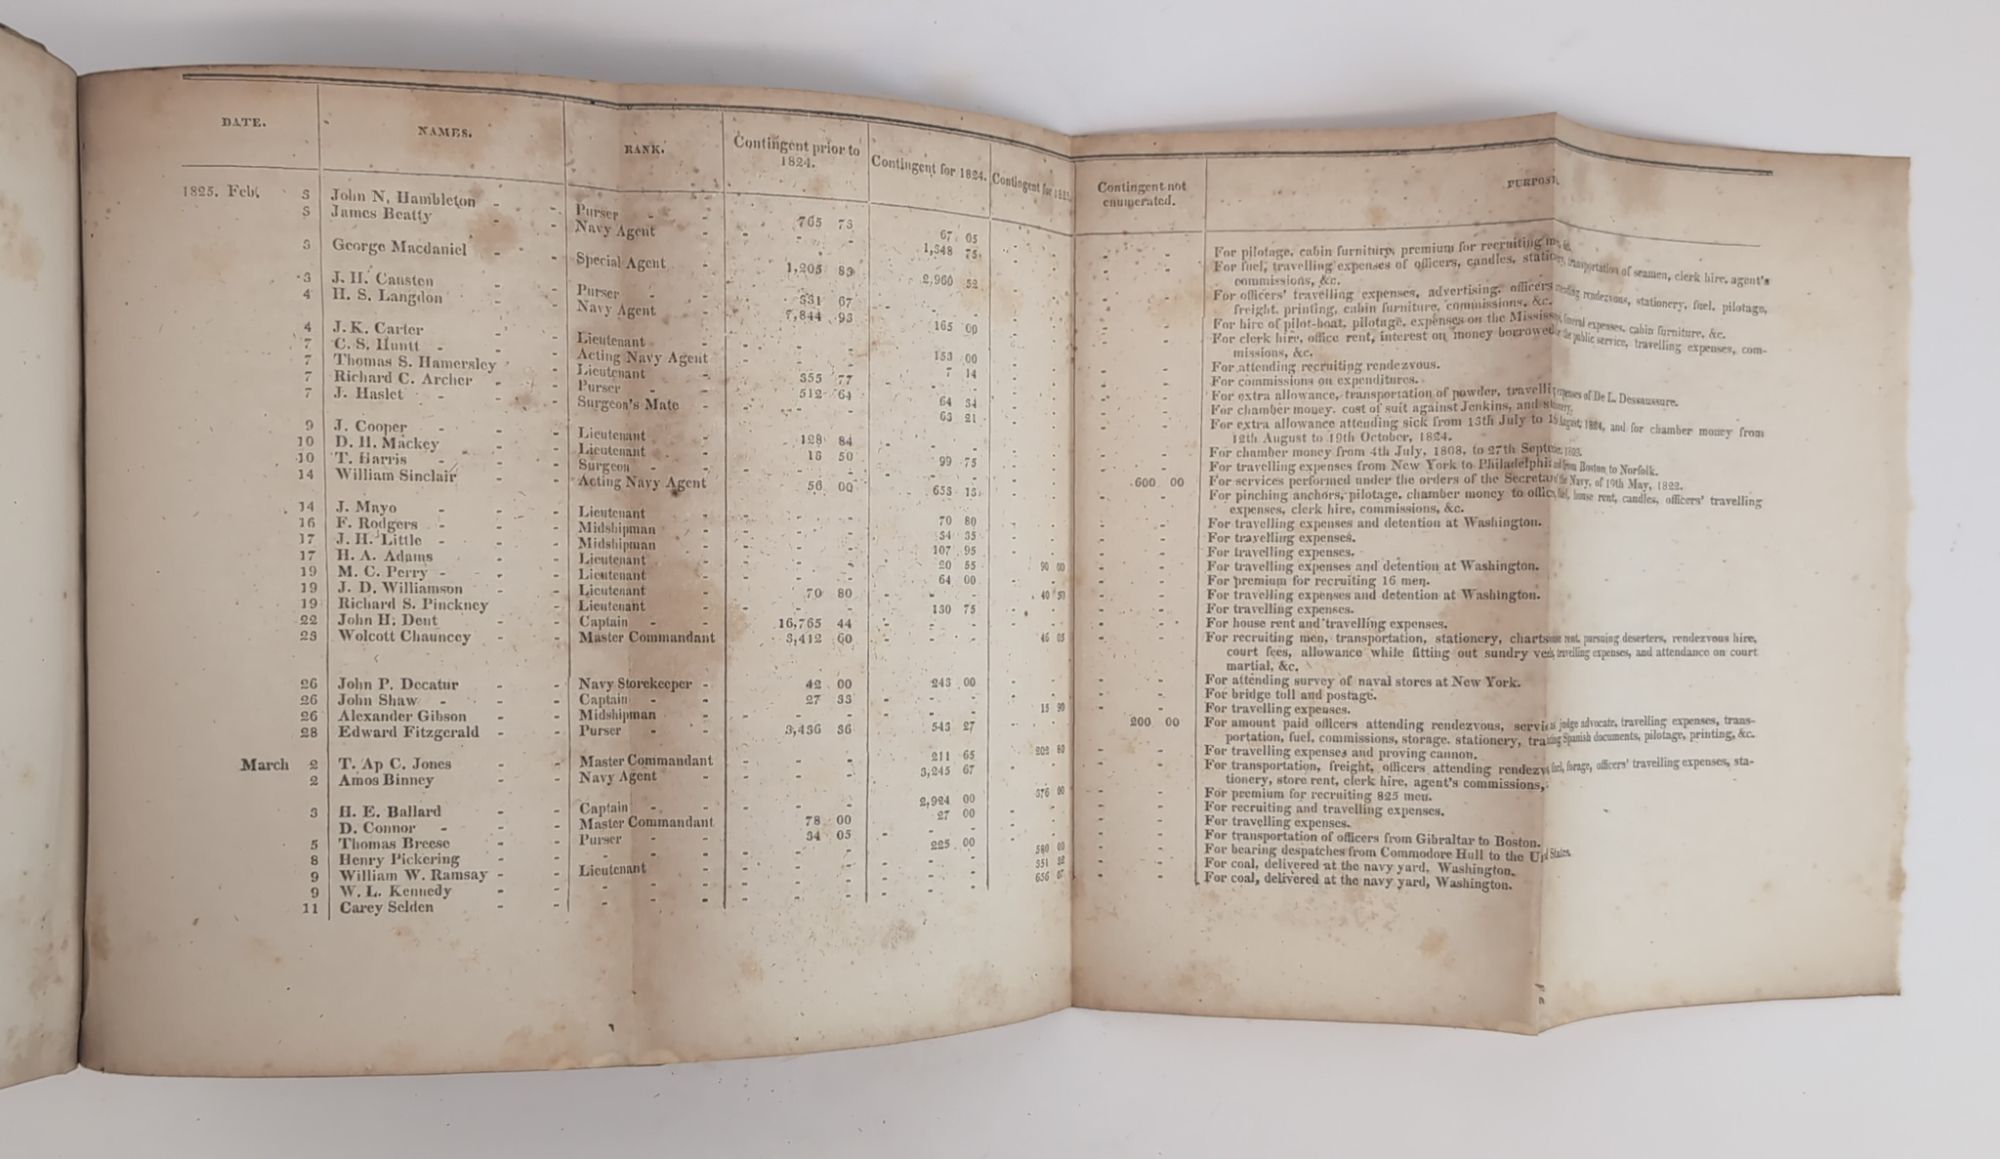 DATE. NAMES. RANK. Contingent prior to 1824. Contingent for 1824. Contingent for Contingent not enumerated. PURPOSE.
1825. Feb. 3 John N. Hambleton - - Purser - - 765 73 67 05 For pilotage, cabin furniture, premium for recruiting
3 James Beatty - - Navy Agent - 1,348 75 For fuel, travelling expenses of officers, candles, transportation of seamen, clerk hire, agent's
commissions, &c.
3 George Macdaniel - - Special Agent - 1,205 83 2,960 52 For officers' travelling expenses, advertising, officers rendezvous, stationery, fuel, pilotage,
freight, printing, cabin furniture, commissions, &c.
3 J. H. Causten - - Purser - - 331 67 For hire of pilot-boat, pilotage, expenses on the funeral expenses, cabin furniture, &c.
4 H. S. Langdon - - Navy Agent - 7,844 93 165 00 For clerk hire, office rent, interest on money borrowed public service, travelling expenses, com-
missions, &c.
4 J. K. Carter - - Lieutenant - For attending recruiting rendezvous.
7 C. S. Huntt - - Acting Navy Agent 153 00 For commissions on expenditures.
7 Thomas S. Hamersley - Lieutenant - 355 77 7 14 For extra allowance, transportation of powder, expenses of De L. Dessaussure.
7 Richard C. Archer - - Purser - - 512 64 For chamber money, cost of suit against Jenkins, and
7 J. Haslet - - Surgeon's Mate - 64 34 For extra allowance attending sick from 13th July to 1824, and for chamber money from
63 21 12th August to 19th October, 1824.
9 J. Cooper - - Lieutenant - 128 84 For chamber money from 4th July, 1808, to 27th
10 D. H. Mackey - - Lieutenant - 18 50 For travelling expenses from New York to Philadelphia and from Boston to Norfolk.
10 T. Harris - - Surgeon - - 99 75 600 00 For services performed under the orders of the Navy, of 19th May, 1822.
14 William Sinclair - Acting Navy Agent 56 00 653 13 For pinching anchors, pilotage, chamber money to house rent, candles, officers' travelling
expenses, clerk hire, commissions, &c.
14 J. Mayo - - Lieutenant - 70 80 For travelling expenses and detention at Washington.
16 F. Rodgers - - Midshipman - 54 35 For travelling expenses.
17 J. H. Little - - Midshipman - 107 95 For travelling expenses.
17 H. A. Adams - - Lieutenant - 20 55 90 00 For travelling expenses and detention at Washington.
19 M. C. Perry - - Lieutenant - 64 00 For premium for recruiting 16 men.
19 J. D. Williamson - - Lieutenant - 70 80 40 50 For travelling expenses and detention at Washington.
19 Richard S. Pinckney - Lieutenant - 130 75 For travelling expenses.
22 John H. Dent - - Captain - - 16,765 44 For house rent and travelling expenses.
23 Wolcott Chauncey - - Master Commandant 3,412 60 46 05 For recruiting men, transportation, stationery, charts rent, pursuing deserters, rendezvous hire,
court fees, allowance while fitting out sundry travelling expenses, and attendance on court
martial, &c.
26 John P. Decatur - - Navy Storekeeper - 42 00 243 00 For attending survey of naval stores at New York.
26 John Shaw - - Captain - - 27 33 For bridge toll and postage.
26 Alexander Gibson - - Midshipman - 15 90 For travelling expenses.
28 Edward Fitzgerald - - Purser - - 3,436 36 543 27 200 00 For amount paid officers attending rendezvous, judge advocate, travelling expenses, trans-
portation, fuel, commissions, storage, stationery, Spanish documents, pilotage, printing, &c.
March 2 T. Ap C. Jones - - Master Commandant 211 65 202 60 For travelling expenses and proving cannon.
2 Amos Binney - - Navy Agent - 3,245 67 For transportation, freight, officers attending fuel, forage, officers' travelling expenses, sta-
tionery, store rent, clerk hire, agent's commissions,
3 H. E. Ballard - - Captain - - 2,924 00 376 00 For premium for recruiting 825 men.
D. Connor - - Master Commandant 78 00 27 00 For recruiting and travelling expenses.
5 Thomas Breese - - Purser - - 34 05 For travelling expenses.
8 Henry Pickering - - 225 00 For transportation of officers from Gibraltar to Boston.
9 William W. Ramsay - - Lieutenant - For bearing despatches from Commodore Hull to the States.
9 W. L. Kennedy - - For coal, delivered at the navy yard, Washington.
11 Carey Selden - - For coal, delivered at the navy yard, Washington.